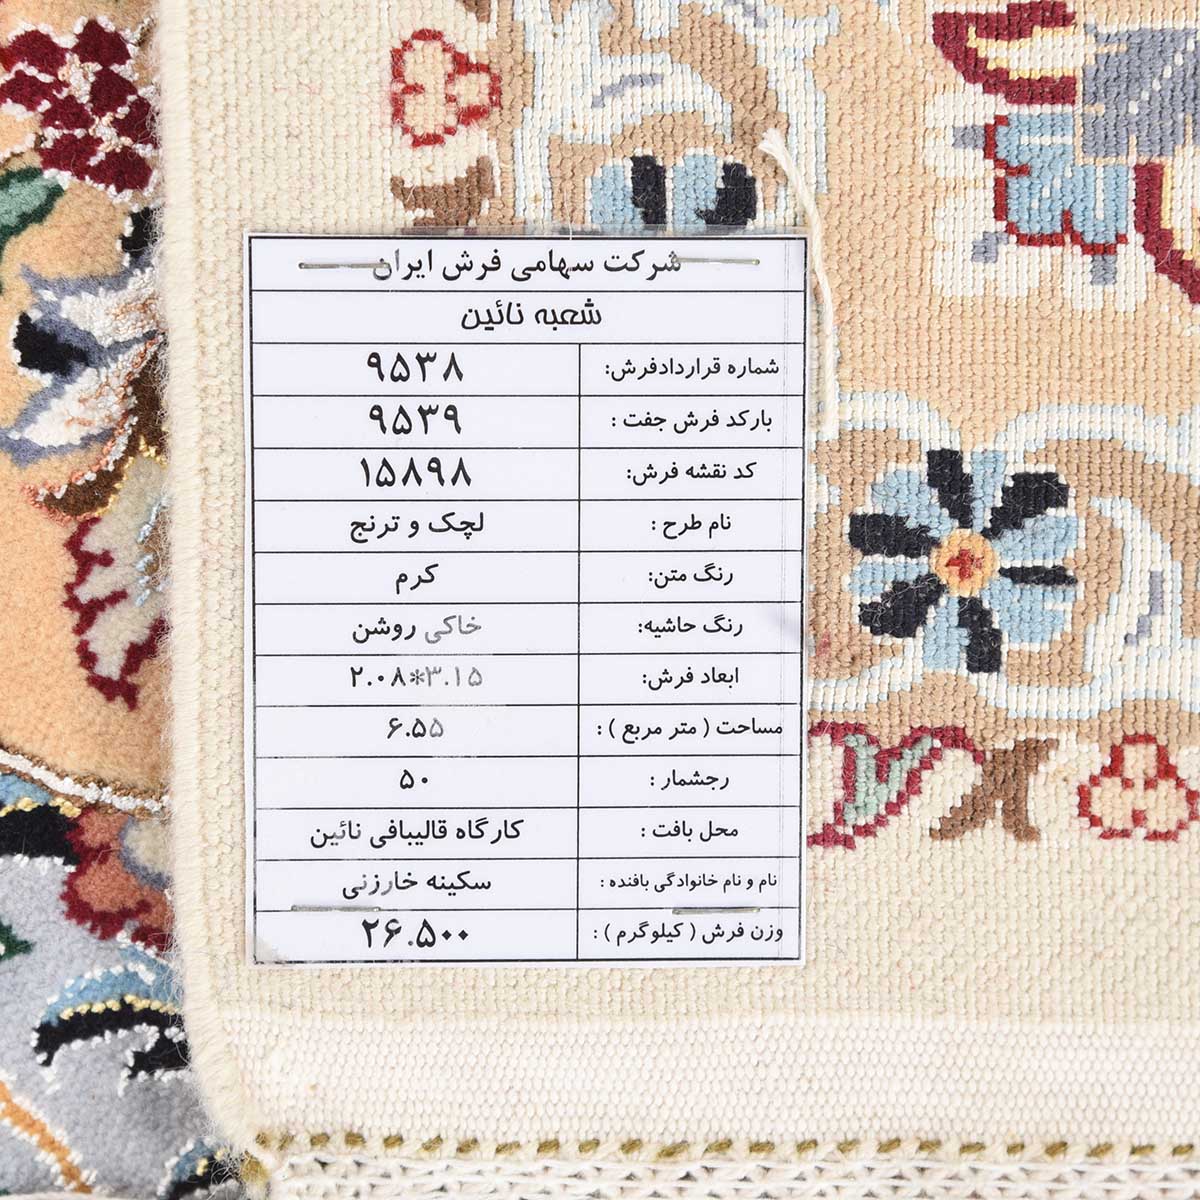 شرکت سهامی فرش ایران
شعبه نائین
شماره قراردادفرش: ۹۵۳۸
بارکد فرش جفت : ۹۵۳۹
کد نقشه فرش: ۱۵۸۹۸
نام طرح : لچک و ترنج
رنگ متن: کرم
رنگ حاشیه: خاکی روشن
ابعاد فرش: ۲.۰۸*۳.۱۵
مساحت ( متر مربع ) : ۶.۵۵
رجشمار : ۵۰
محل بافت : کارگاه قالیبافی نائین
نام و نام خانوادگی بافنده : سکینه خارزنی
وزن فرش ( کیلوگرم ) : ۲۶.۵۰۰